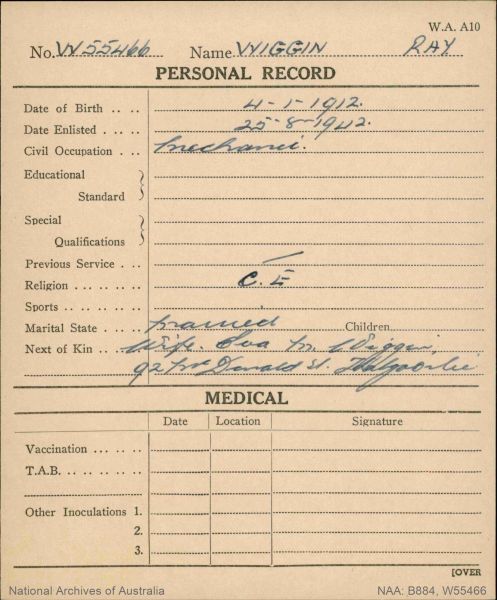 W.A. A10
No. W55466 Name WIGGIN RAY
PERSONAL RECORD
Date of Birth .. .. 4-1-1912.
Date Enlisted .. .. 25-8-1942.
Civil Occupation .. .. Mechanic.
Educational
Standard
Special
Qualifications
Previous Service .. .. —
Religion .. .. .. .. C. E
Sports .. .. .. .. ..
Marital State .. .. Married Children
Next of Kin .. Wife. Eva M. Wiggin,
92 McDonald St. Kalgoorlie
MEDICAL
Date Location Signature
Vaccination .. .. ..
T.A.B. .. .. .. .. ..
Other Inoculations 1.
2.
3.
[OVER
National Archives of Australia NAA: B884, W55466